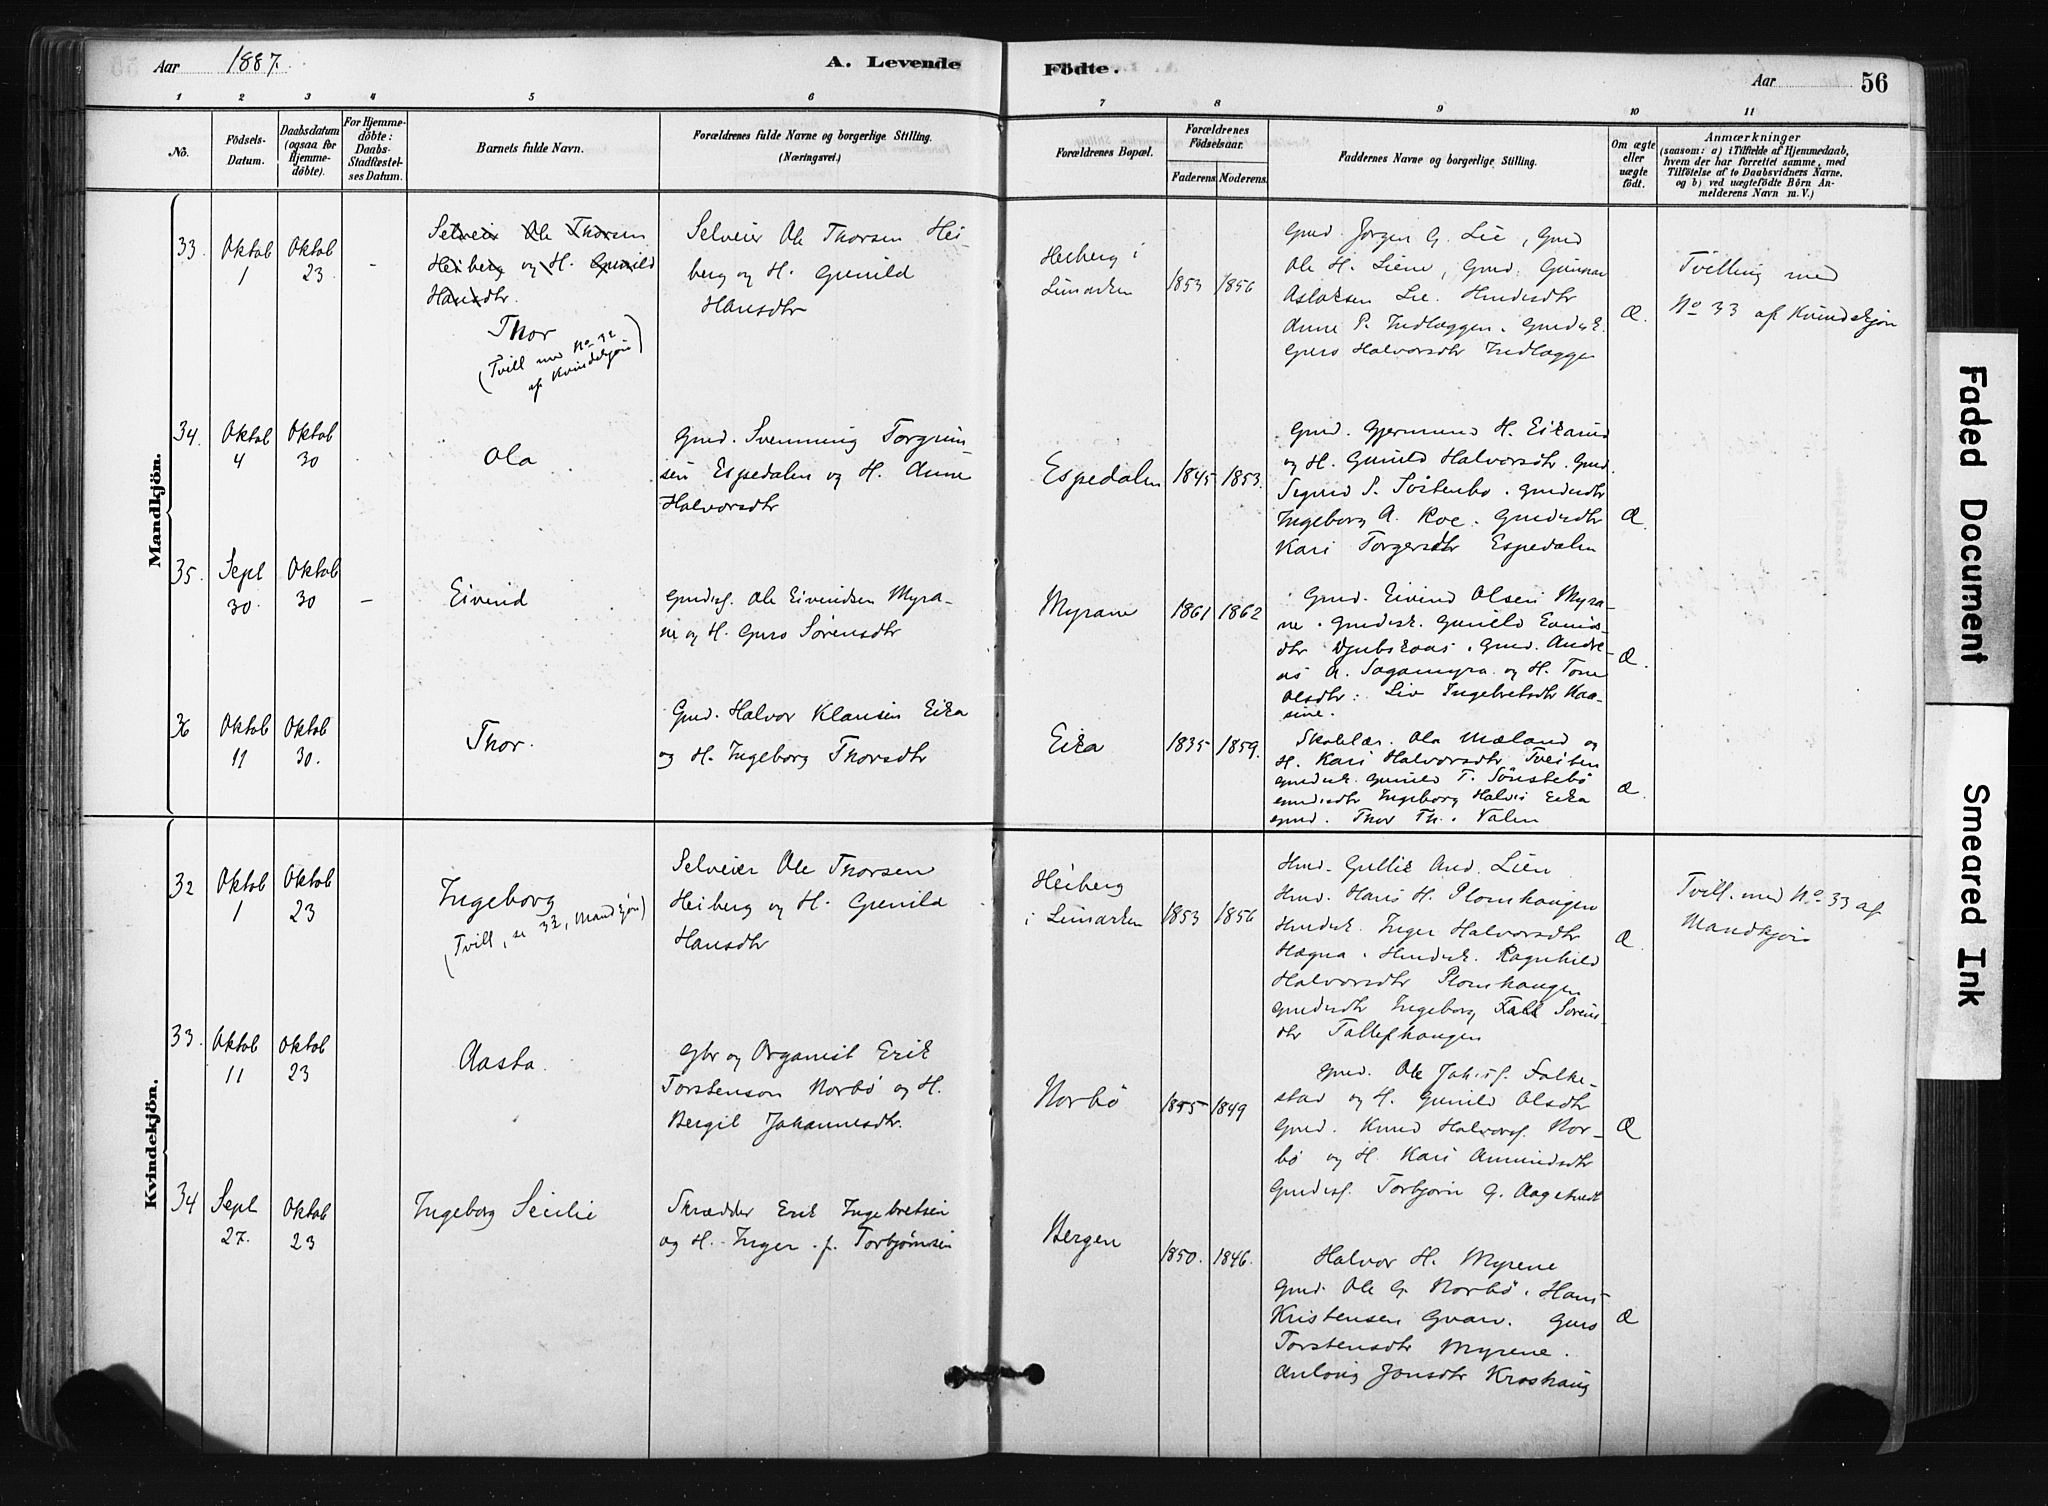 Aar 1887.
A. Levende Födte.
Aar 56
1 2 3 4 5 6 7 8 9 10 11
No.
Födsels-Datum.
Daabsdatum (ogsaa for Hjemmedöbte).
For Hjemmedöbte: Daabs-Stadfæstelses Datum.
Barnets fulde Navn.
Forældrenes fulde Navne og borgerlige Stilling. (Næringsvei.)
Forældrenes Bopæl.
Forældrenes Födselsaar.
Faderens. Moderens.
Faddernes Navne og borgerlige Stilling.
Om ægte eller uægte födt.
Anmærkninger
(saasom: a) i Tilfælde af Hjemmedaab, hvem der har forrettet samme, med Tilföielse af to Daabsvidners Navne, og b) ved uægtefödte Börn Anmelderens Navn m. V.)
Mandkjön.
33. Oktob 1
Oktob 23
-
Selveier Ole Thorsen
Heiberg og H. Gunild
Hansdtr.
Thor
(Tvill med No 32
af Kvindekjön)
Selveier Ole Thorsen Hei-
berg og H. Gunild
Hansdtr
Heiberg i
Limarken
1853 1856
Gmd. Jörgen G. Lie, Gmd
Ole H. Liene, Gmd. Gunnar
Aslaksen Lie. Hmdsdtr
Anne P. Indlæggen. Gmdsk.
Guro Halvorsdtr Indlægge
Æ.
Tvilling med
No 33 af Kvindekjön
34. Oktob 4
Oktob 30
Ola
Gmd. Svenning Torgrim-
sen Espedalen og H. Anne
Halvorsdtr
Espedalen
1845 1853.
Gmd. Gjermund H. Eikarud
og H. Gunild Halvorsdtr. Gmd.
Sigurd S. Söstenbo. Gmdsdtr
Ingeborg A. Roe. Gmdsdtr
Kari Torgersdtr Espedalen
Æ.
35. Sept 30.
Oktob 30
-
Eivind
Gmdsf. Ole Eivindsen Myra-
ne og H. Guro Sörensdtr
Myrane
1861 1862
Gmd. Eivind Olsen Myra-
ne. Gmdsk. Gunild Evinds-
dtr Djubskaas. Gmd. Andre-
as A. Sagamyra og H. Tone
Olsdtr. Liv Ingebretsdtr Kaa-
sine.
Æ.
36 Oktob 11
Oktob 30.
Thor.
Gmd. Halvor Klausen Eika
og H. Ingeborg Thorsdtr
Eika
1835 1859.
Skolelær. Ola Mæland og
H. Kari Halvorsdtr Tveiten
gmdsk. Gunild T. Sönstebö
gmdsdtr Ingeborg Halvs Eika
gmd. Thor Th. Valen
Æ.
Kvindekjön.
32 Oktob 1
Oktob 23
Ingeborg
(Tvill, se 33, Mandkjön)
Selveier Ole Thorsen
Heiberg og H. Gunild
Hansdtr
Heiberg
i Limarken
1853 1856
Hmd. Gullik And. Lien
Hmd. Hans H. Plomhaugen
Hmdsk. Inger Halvorsdtr
Hægna. Hmdsk. Ragnhild
Halvorsdtr Plomhaugen
gmdsdtr Ingeborg Sörens-
dtr Tallefhaugen
Æ.
Tvill. med No 33 af
Mandkjön
33. Oktob 11
Oktob 23
Aasta.
Gbr og Organist Erik
Torstenson Norbö og H.
Bergit Johannesdtr.
Norbö
1855 1849
gmd. Ole Johisf. Falke-
stad og H. Gunild Olsdtr
gmd. Knud Halvorsf. Nor-
bö og H. Kari Amundsdtr
Gmdsf. Torbjörn G. Aagetveit
Æ
34 Sept 27.
Oktob 23
Ingeborg Secilie
Skrædder Erik Ingebretsen
og H. Inger f. Torbjörnsen
Bergen
1850. 1846.
Halvor H. Myrene
Gmd. Ole G. Norbö. Hans
Kristensen Gvarv. Guro
Torstensdtr Myrene.
Anlaug Jonsdtr Kroshaug
Æ
Faded Document
Smeared Ink